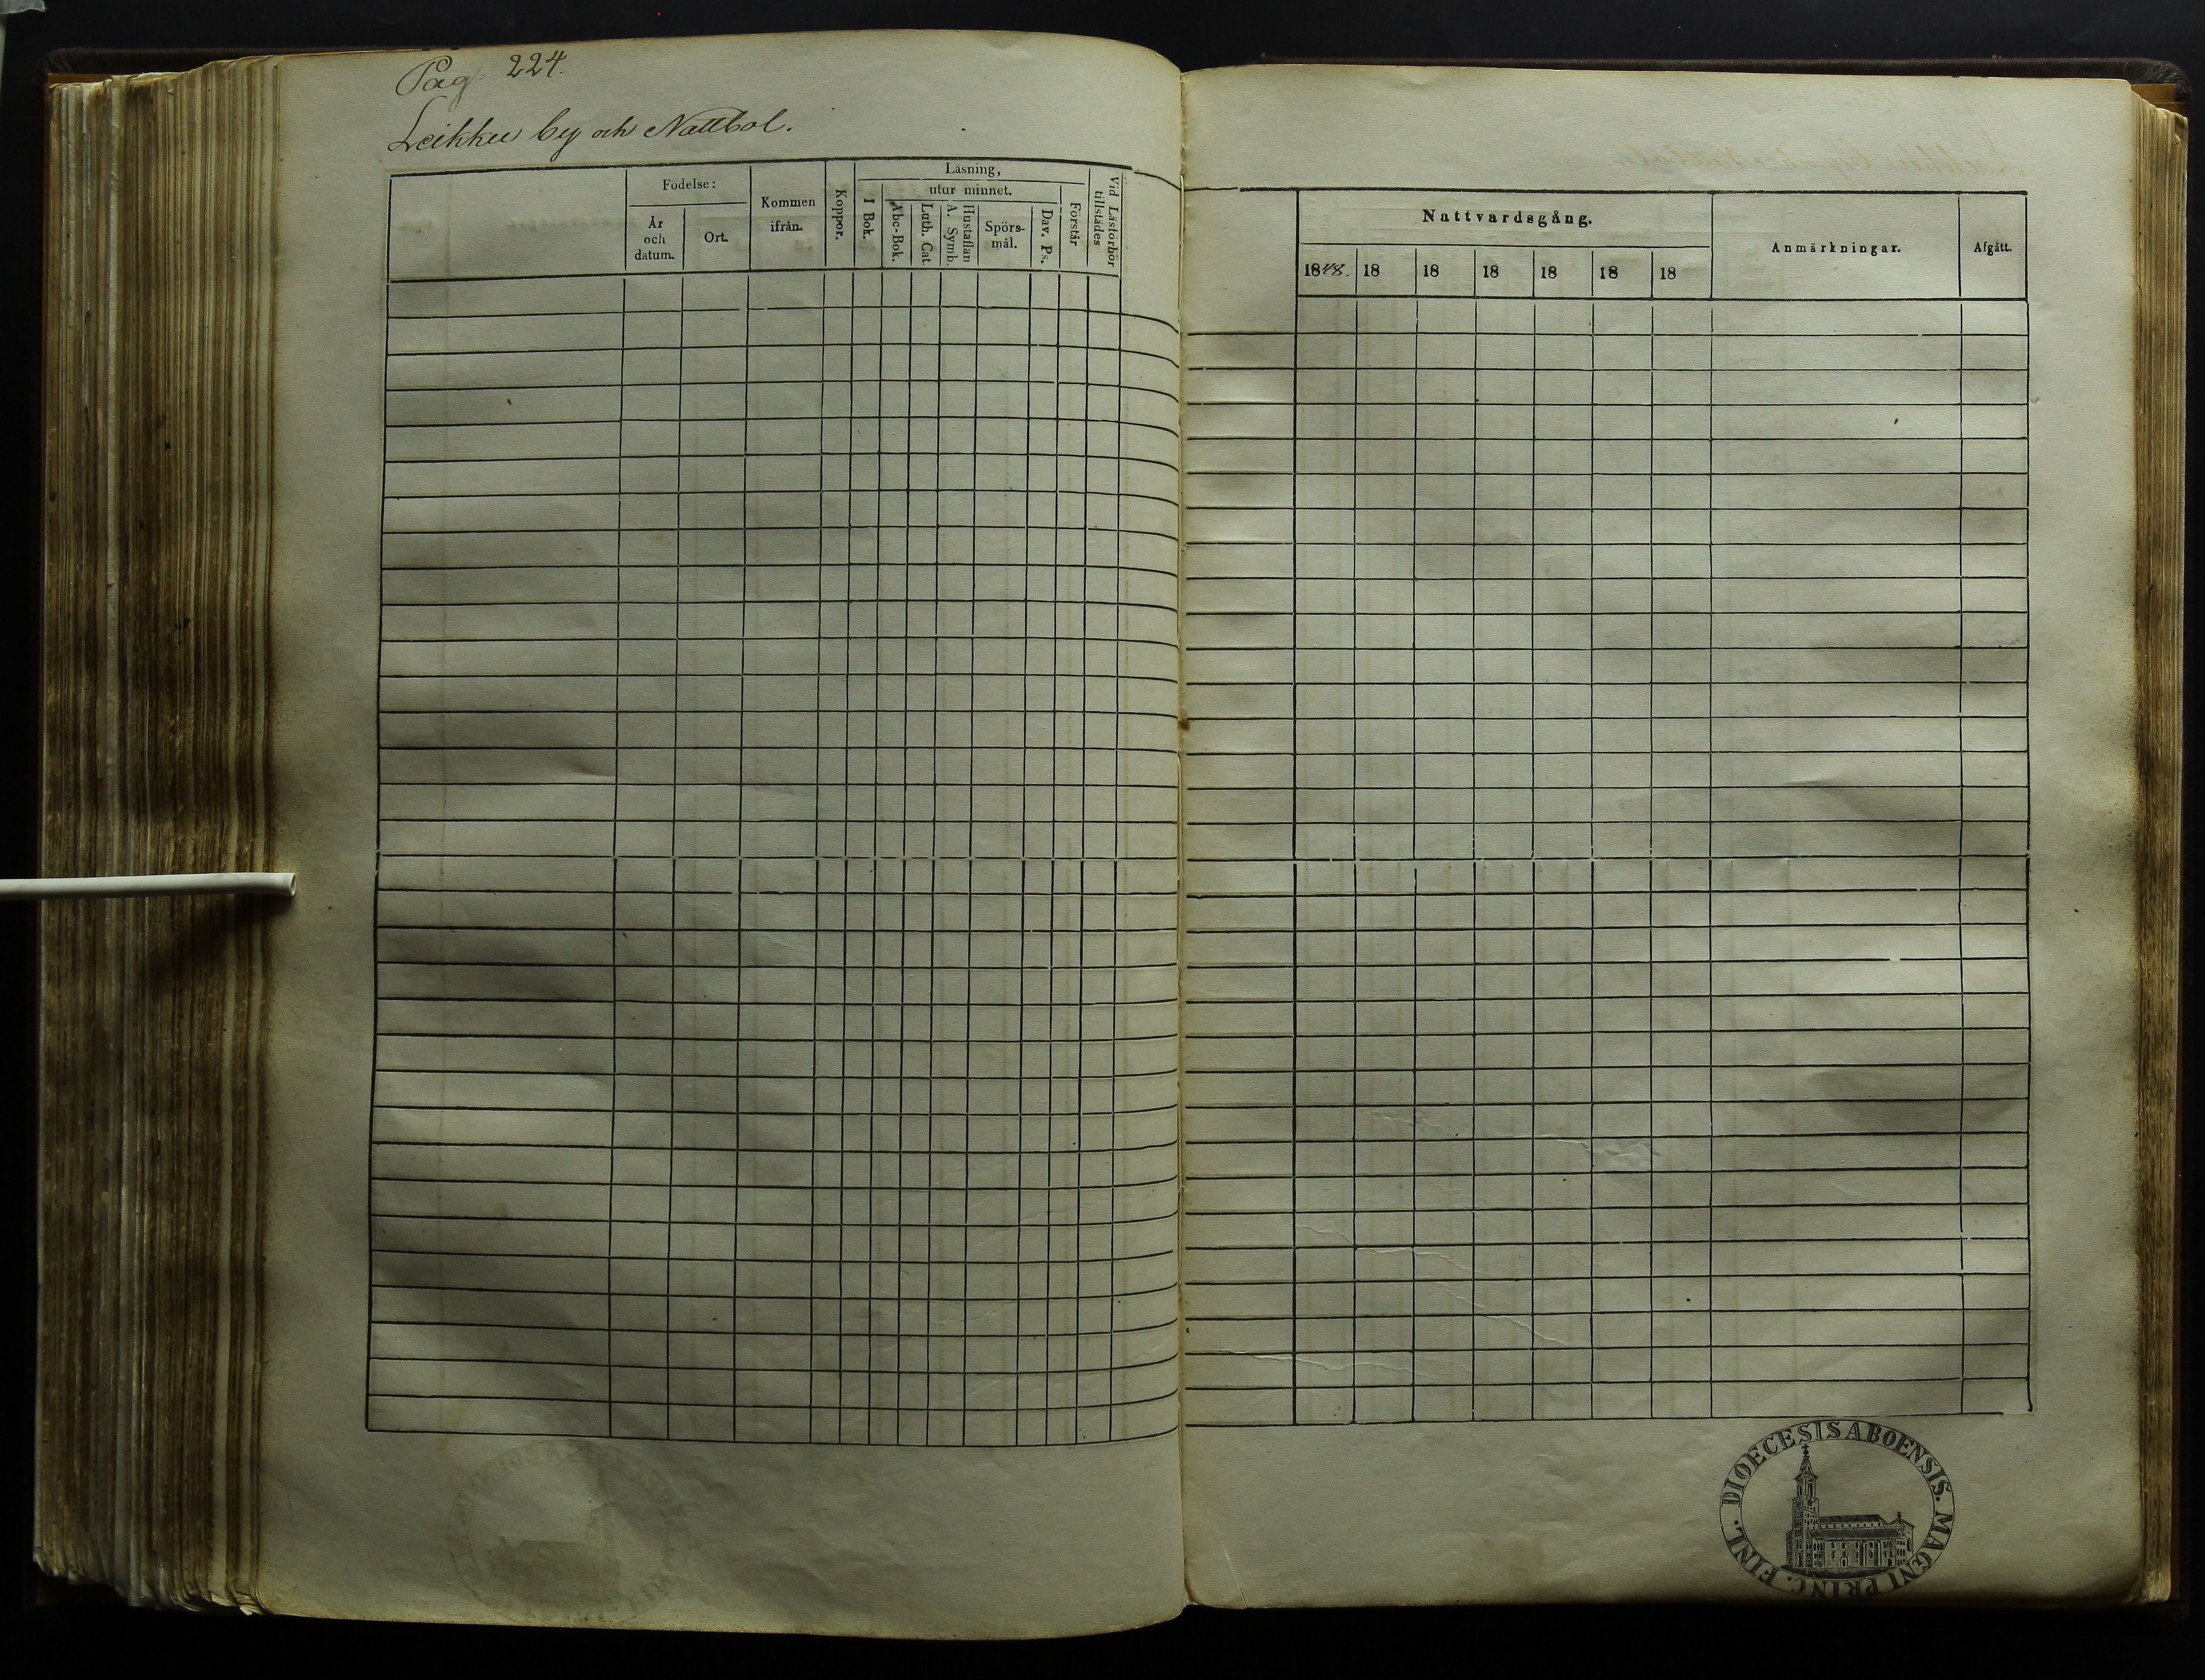 Pag. 224.
Leikku by och Nattbol.
Födelse:
År och datum.
Ort.
Kommen ifrån.
Koppor.
Läsning,
utur minnet.
I Bok.
Abc-Bok.
Luth. Cat.
Hustaflan A. Symb.
Spörsmål.
Dav. Ps.
Förstår
Vid Läsförhör tillstädes
Nattvardsgång.
1848. 18 18 18 18 18 18
Anmärkningar.
Afgått.
DIOECESIS ABOENSIS. MAGNI PRINC. FINL.